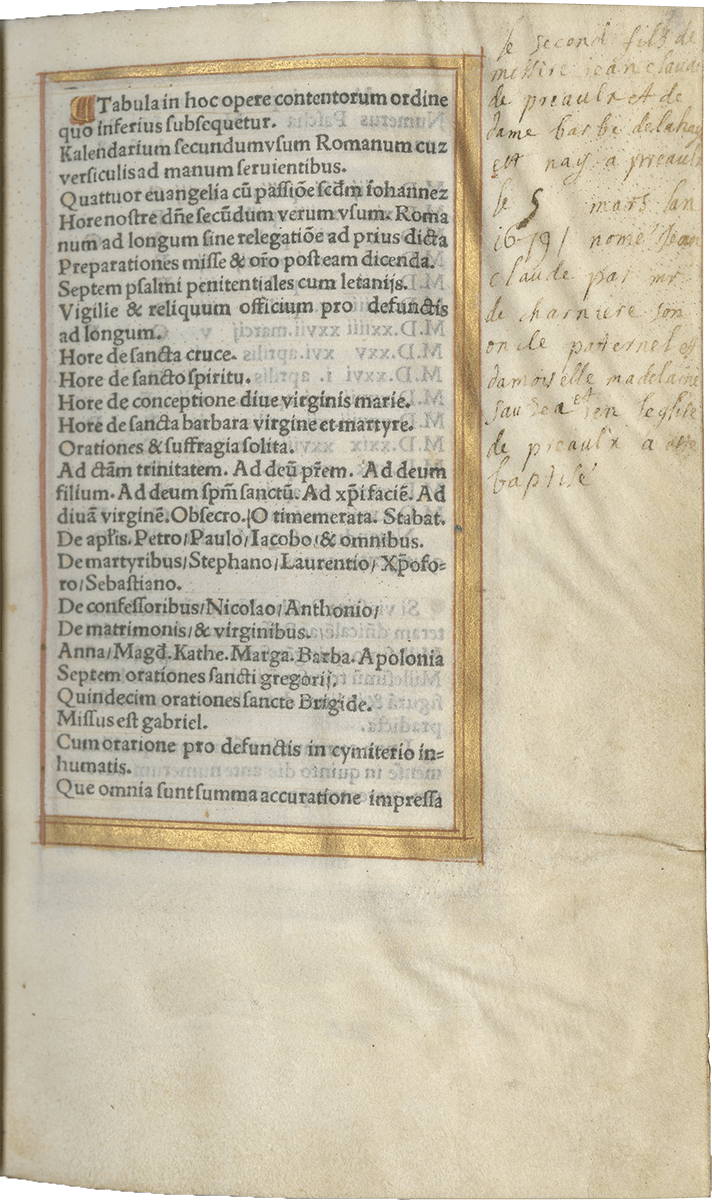 Tabula in hoc opere contentorum ordine
quo inferius subsequetur.
Kalendarium secundum vsum Romanum cuz
versiculis ad manum seruientibus.
Quattuor euangelia cū passiōe scd̄m iohannez
Hore nostre dn̄e secūdum verum vsum. Roma
num ad longum sine relegatiōe ad prius dicta
Preparationes misse & or̄o post eam dicenda.
Septem psalmi penitentiales cum letanijs.
Vigilie & reliquum officium pro defunctis
ad longum.
Hore de sancta cruce.
Hore de sancto spiritu.
Hore de conceptione diue virginis marie.
Hore de sancta barbara virgine et martyre.
Orationes & suffragia solita.
Ad ctām trinitatem. Ad deū pr̄em. Ad deum
filium. Ad deum spm̄ sanctū. Ad xp̄i faciē. Ad
diuā virginē. Obsecro. O timemerata. Stabat.
De apl̄is. Petro/Paulo/Iacobo/& omnibus.
De martyribus/Stephano/Laurentio/Xp̄ofo=
ro/Sebastiano.
De confessoribus/Nicolao/Anthonio/
De matrimonis/& virginibus.
Anna/Magd̄. Kathe. Marga. Barba. Apolonia
Septem orationes sancti gregorij.
Quindecim orationes sancte Brigide.
Missus est gabriel.
Cum oratione pro defunctis in cymiterio in=
humatis.
Que omnia sunt summa accuratione impressa
le second fils de
messire iean claude
de preaulx et de
dame barbe delahay
est nay a preaulx
le 5 mars lan
1679 nomé Jean
claude par mr
de charniere son
oncle paternel et
damoiselle madelaine
et en leglise
de preaulx a este
baptisé